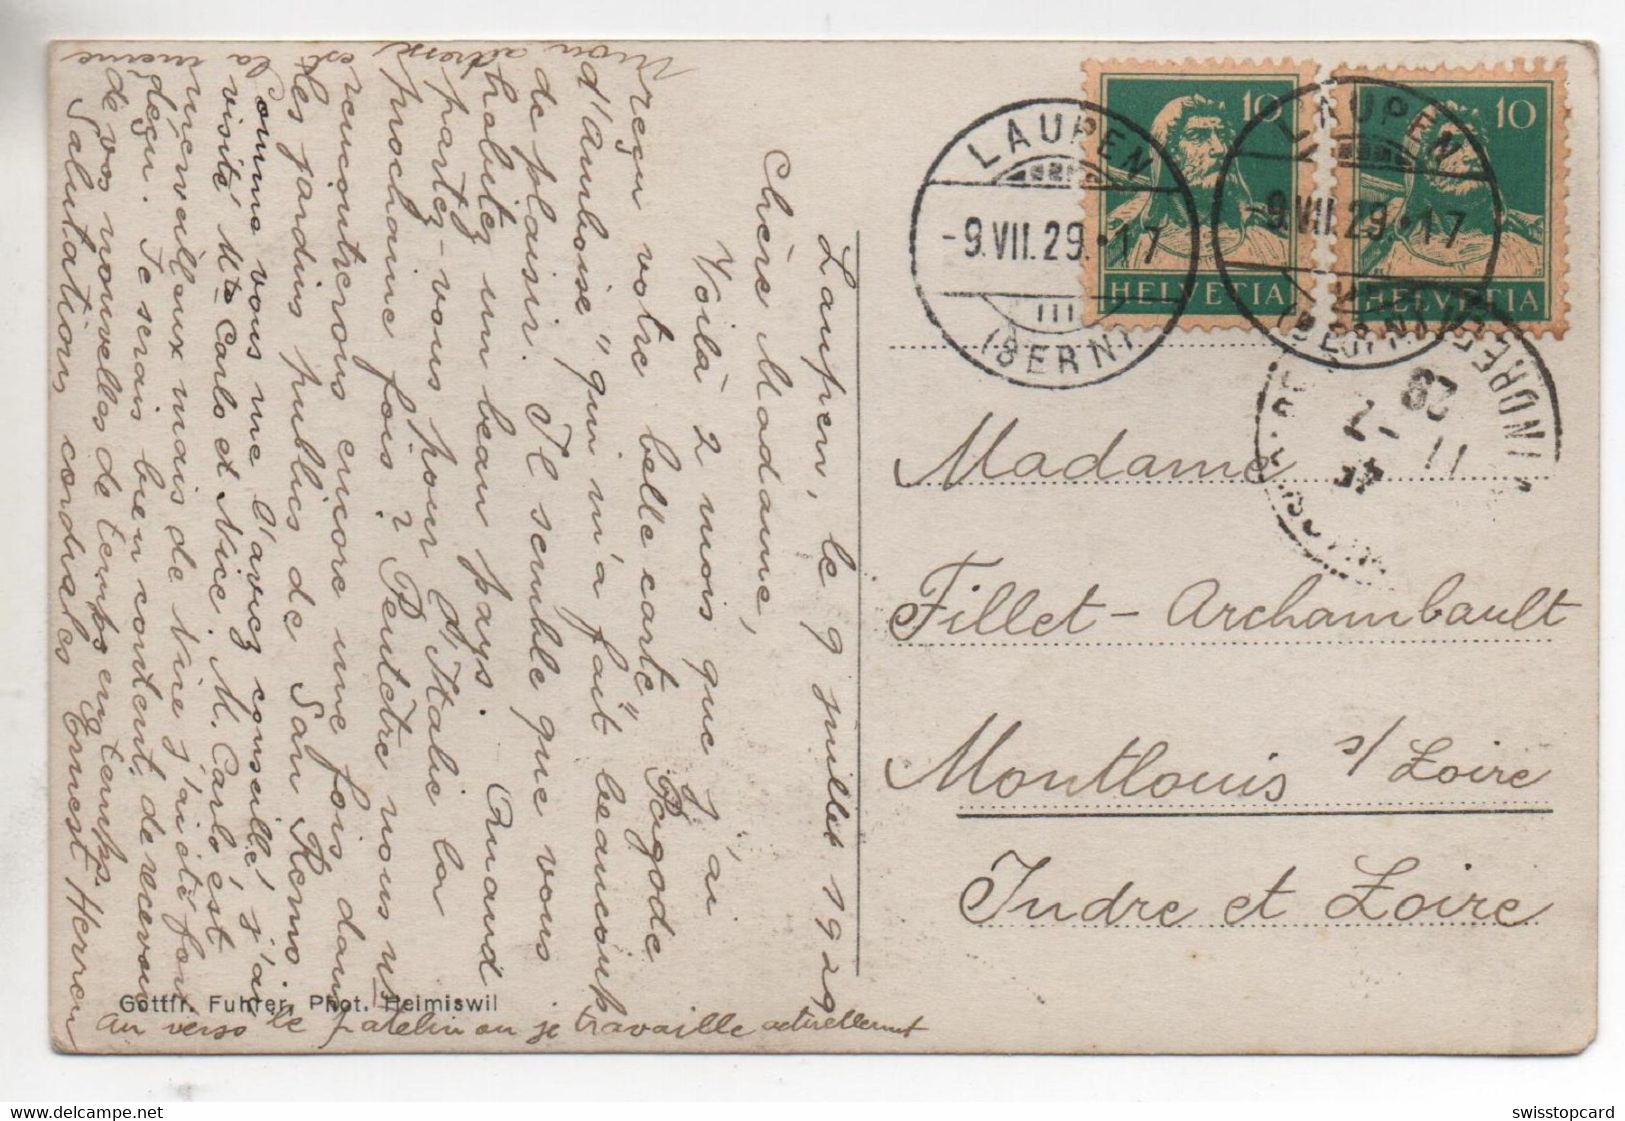 Laupen, le 9 juillet 1929
Chère Madame,
Voilà 2 mois que j'ai
reçu votre belle carte "Pagode
d'Amboise" qui m'a fait beaucoup
de plaisir. Il semble que vous
habitez un beau pays. Quand
partez-vous pour l'Italie la
prochaine fois? Peutêtre nous nous
rencontrerons encore une fois dans
les jardins publics de San Remo
Comme vous me l'avez conseillé j'ai
visité Mte Carlo et Nice. M. Carlo est
merveilleux mais de Nice j'ai été
deçu. Je serais bien content de recevoir
de vos nouvelles de temps en temps.
Salutations cordiales Ernest Herren
Mon adresse
est
la
même
Gottfr. Fuhrer, Phot. Heimiswil
au verso le où je travaille actuellement
LAUPEN
-9.VII.29.·17
III
(BERN)
LAUPEN
-9.VII.29.·17
10
HELVETIA
10
HELVETIA
INDRE
Madame
Fillet-Archambault
Montlouis s/ Loire
Indre et Loire
swisstopcard